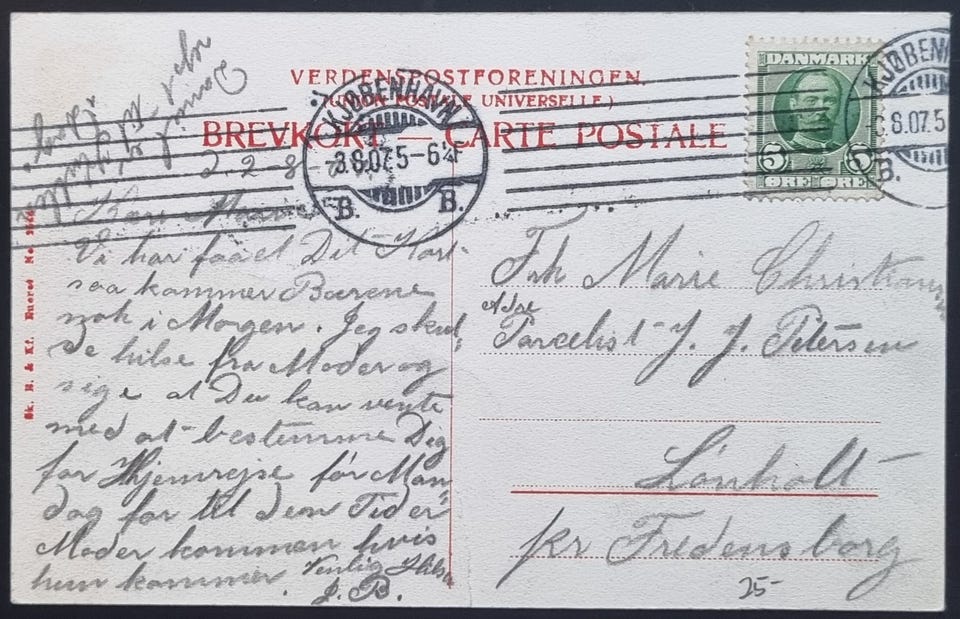 VERDENSPOSTFORENINGEN.
(UNION POSTALE UNIVERSELLE.)
BREVKORT — CARTE POSTALE
DANMARK
5 5
ØRE ØRE
KJØBENHAVN
3.8.07. 5-6¼E
B. B.
KJØBENHAVN
3.8.07. 5
B.
2-8
Kære Marie
Vi har faaet Dit Kort
saa kommer Bærene
nok i Morgen. Jeg skul,
de hilse fra Moder og
sige at Du kan vente
med at bestemme Dig
for Hjemrejse før Man
dag for til den Tid er
Moder kommen hvis
hun kommer. Venlig Hilsen
J. B.
Frk Marie Christiansen
Adre
Parcelist J. J. Petersen
Lönholt
pr Fredensborg
25-
Sk. B. & Kf. Eneret No.